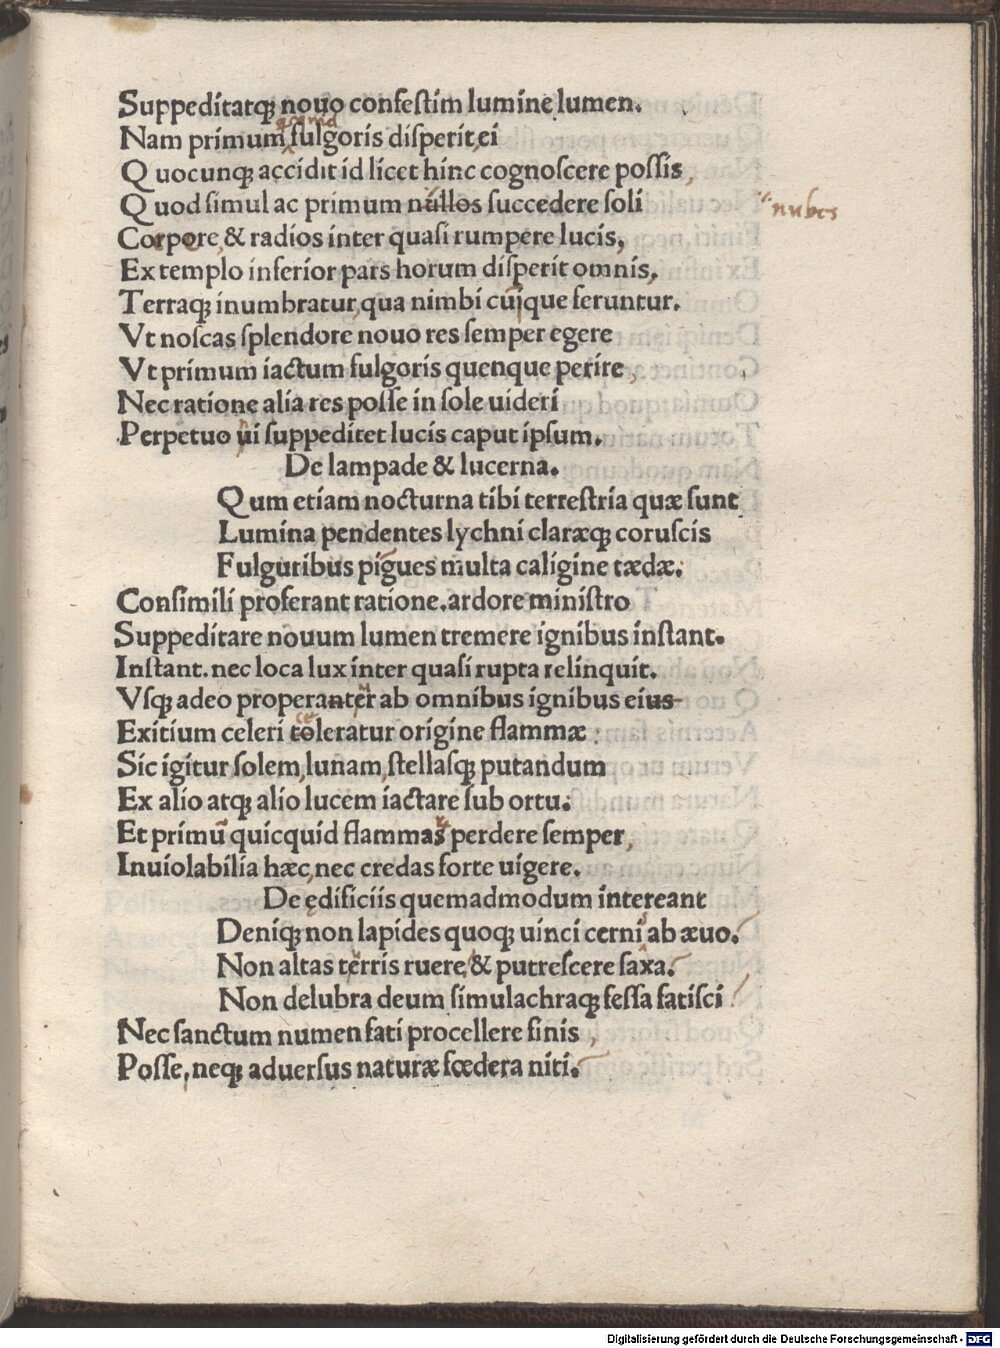 Suppeditatq; nouo confeſtim lumine lumen.
Nam primum fulgoris diſperit, ei
Quocunq; accidit id licet hinc cognoſcere poſſis,
Quod ſimul ac primum nullos ſuccedere ſoli
nubes
Corpore, & radios inter quaſi rumpere lucis,
Ex templo inferior pars horum diſperit omnis,
Terraq; inumbratur, qua nimbi cuique feruntur.
Vt noſcas ſplendore nouo res ſemper egere
Vt primum iactum fulgoris quenque perire,
Nec ratione alia res poſſe in ſole uideri
Perpetuo ui ſuppeditet lucis caput ipſum.
De lampade & lucerna.
Qum etiam nocturna tibi terreſtria quæ ſunt
Lumina pendentes lychni claræq; coruſcis
Fulguribus pigues multa caligine tædæ.
Conſimili proferant ratione. ardore miniſtro
Suppeditare nouum lumen tremere ignibus inſtant.
Inſtant. nec loca lux inter quaſi rupta relinquit.
Vſq; adeo properanter ab omnibus ignibus eius
Exitium celeri toleratur origine flammæ :
Sic igitur ſolem, lunam, ſtellaſq; putandum
Ex alio atq; alio lucem iactare ſub ortu.
Et primū quicquid flammas perdere ſemper,
Inuiolabilia hæc, nec credas forte uigere.
De ędificiis quemadmodum intereant
Deniq; non lapides quoq; uinci cerni ab æuo.
Non altas terris ruere, & putreſcere ſaxa.
Non delubra deum ſimulachraq; feſſa fatiſci
Nec ſanctum numen fati procellere finis,
Poſſe, neq; aduerſus naturæ fœdera niti.
Digitalisierung gefördert durch die Deutsche Forschungsgemeinschaft - DFG